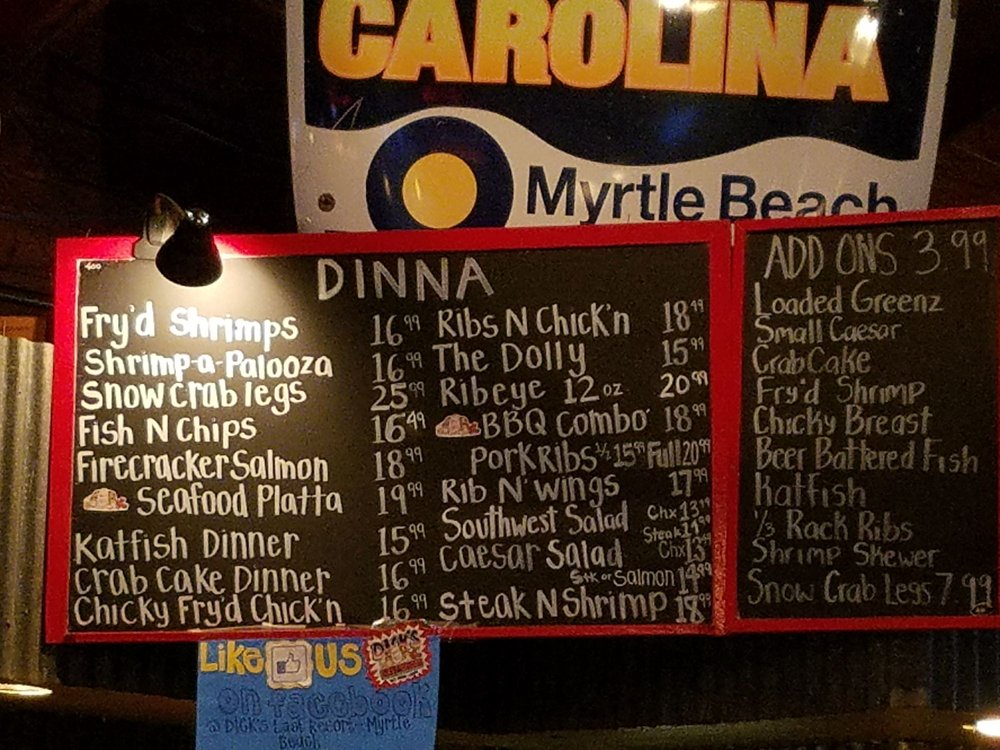 CAROLINA
Myrtle Beach
DINNA
Fry'd Shrimps 16.99
Shrimp-a-Palooza 16.99
Snow crab legs 25.99
Fish N Chips 16.49
Firecracker Salmon 18.99
Seafood Platta 19.99
Katfish Dinner 15.99
Crab Cake Dinner 16.99
Chicky Fry'd Chick'n 16.99
Ribs N Chick'n 18.99
The Dolly 15.99
Ribeye 12 oz 20.99
BBQ Combo 18.99
Pork Ribs ½ 15.99 Full 20.99
Rib N' Wings 17.99
Southwest Salad Chx 13.99
Steak 14.99
Caesar Salad Chx 13.99
Stk or Salmon 14.99
Steak N Shrimp 18.99
ADD ONS 3.99
Loaded Greenz
Small Caesar
Crab Cake
Fry'd Shrimp
Chicky Breast
Beer Battered Fish
Katfish
⅓ Rack Ribs
Shrimp Skewer
Snow Crab Legs 7.99
Like US
DICK'S
on facebook
@ Dick's Last Resort-Myrtle
Beach